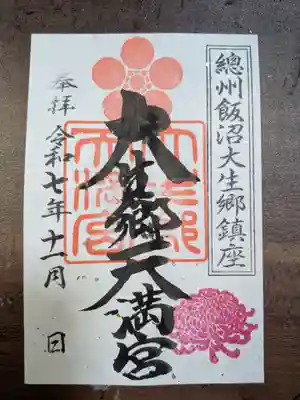 總州飯沼大生郷鎮座
大生郷天満宮
奉拝 令和七年十一月 日